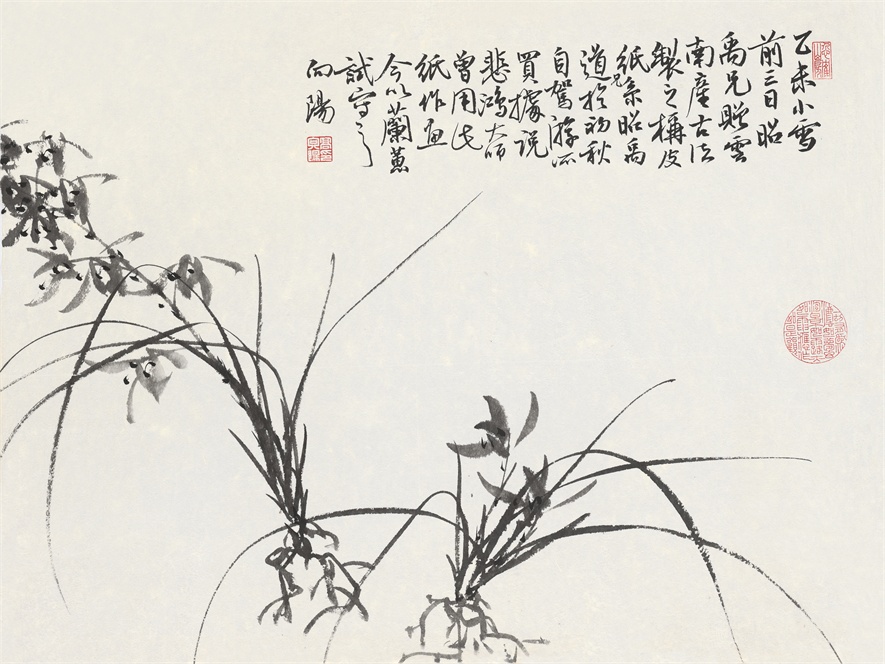 乙未小雪
前三日昭
禹兄贈雲
南産古法
製之構皮
紙系昭禹
道兄於初秋
自駕游所
買據说
悲鴻大师
曾用此
紙作画
今以蘭蕙
試写之
向陽